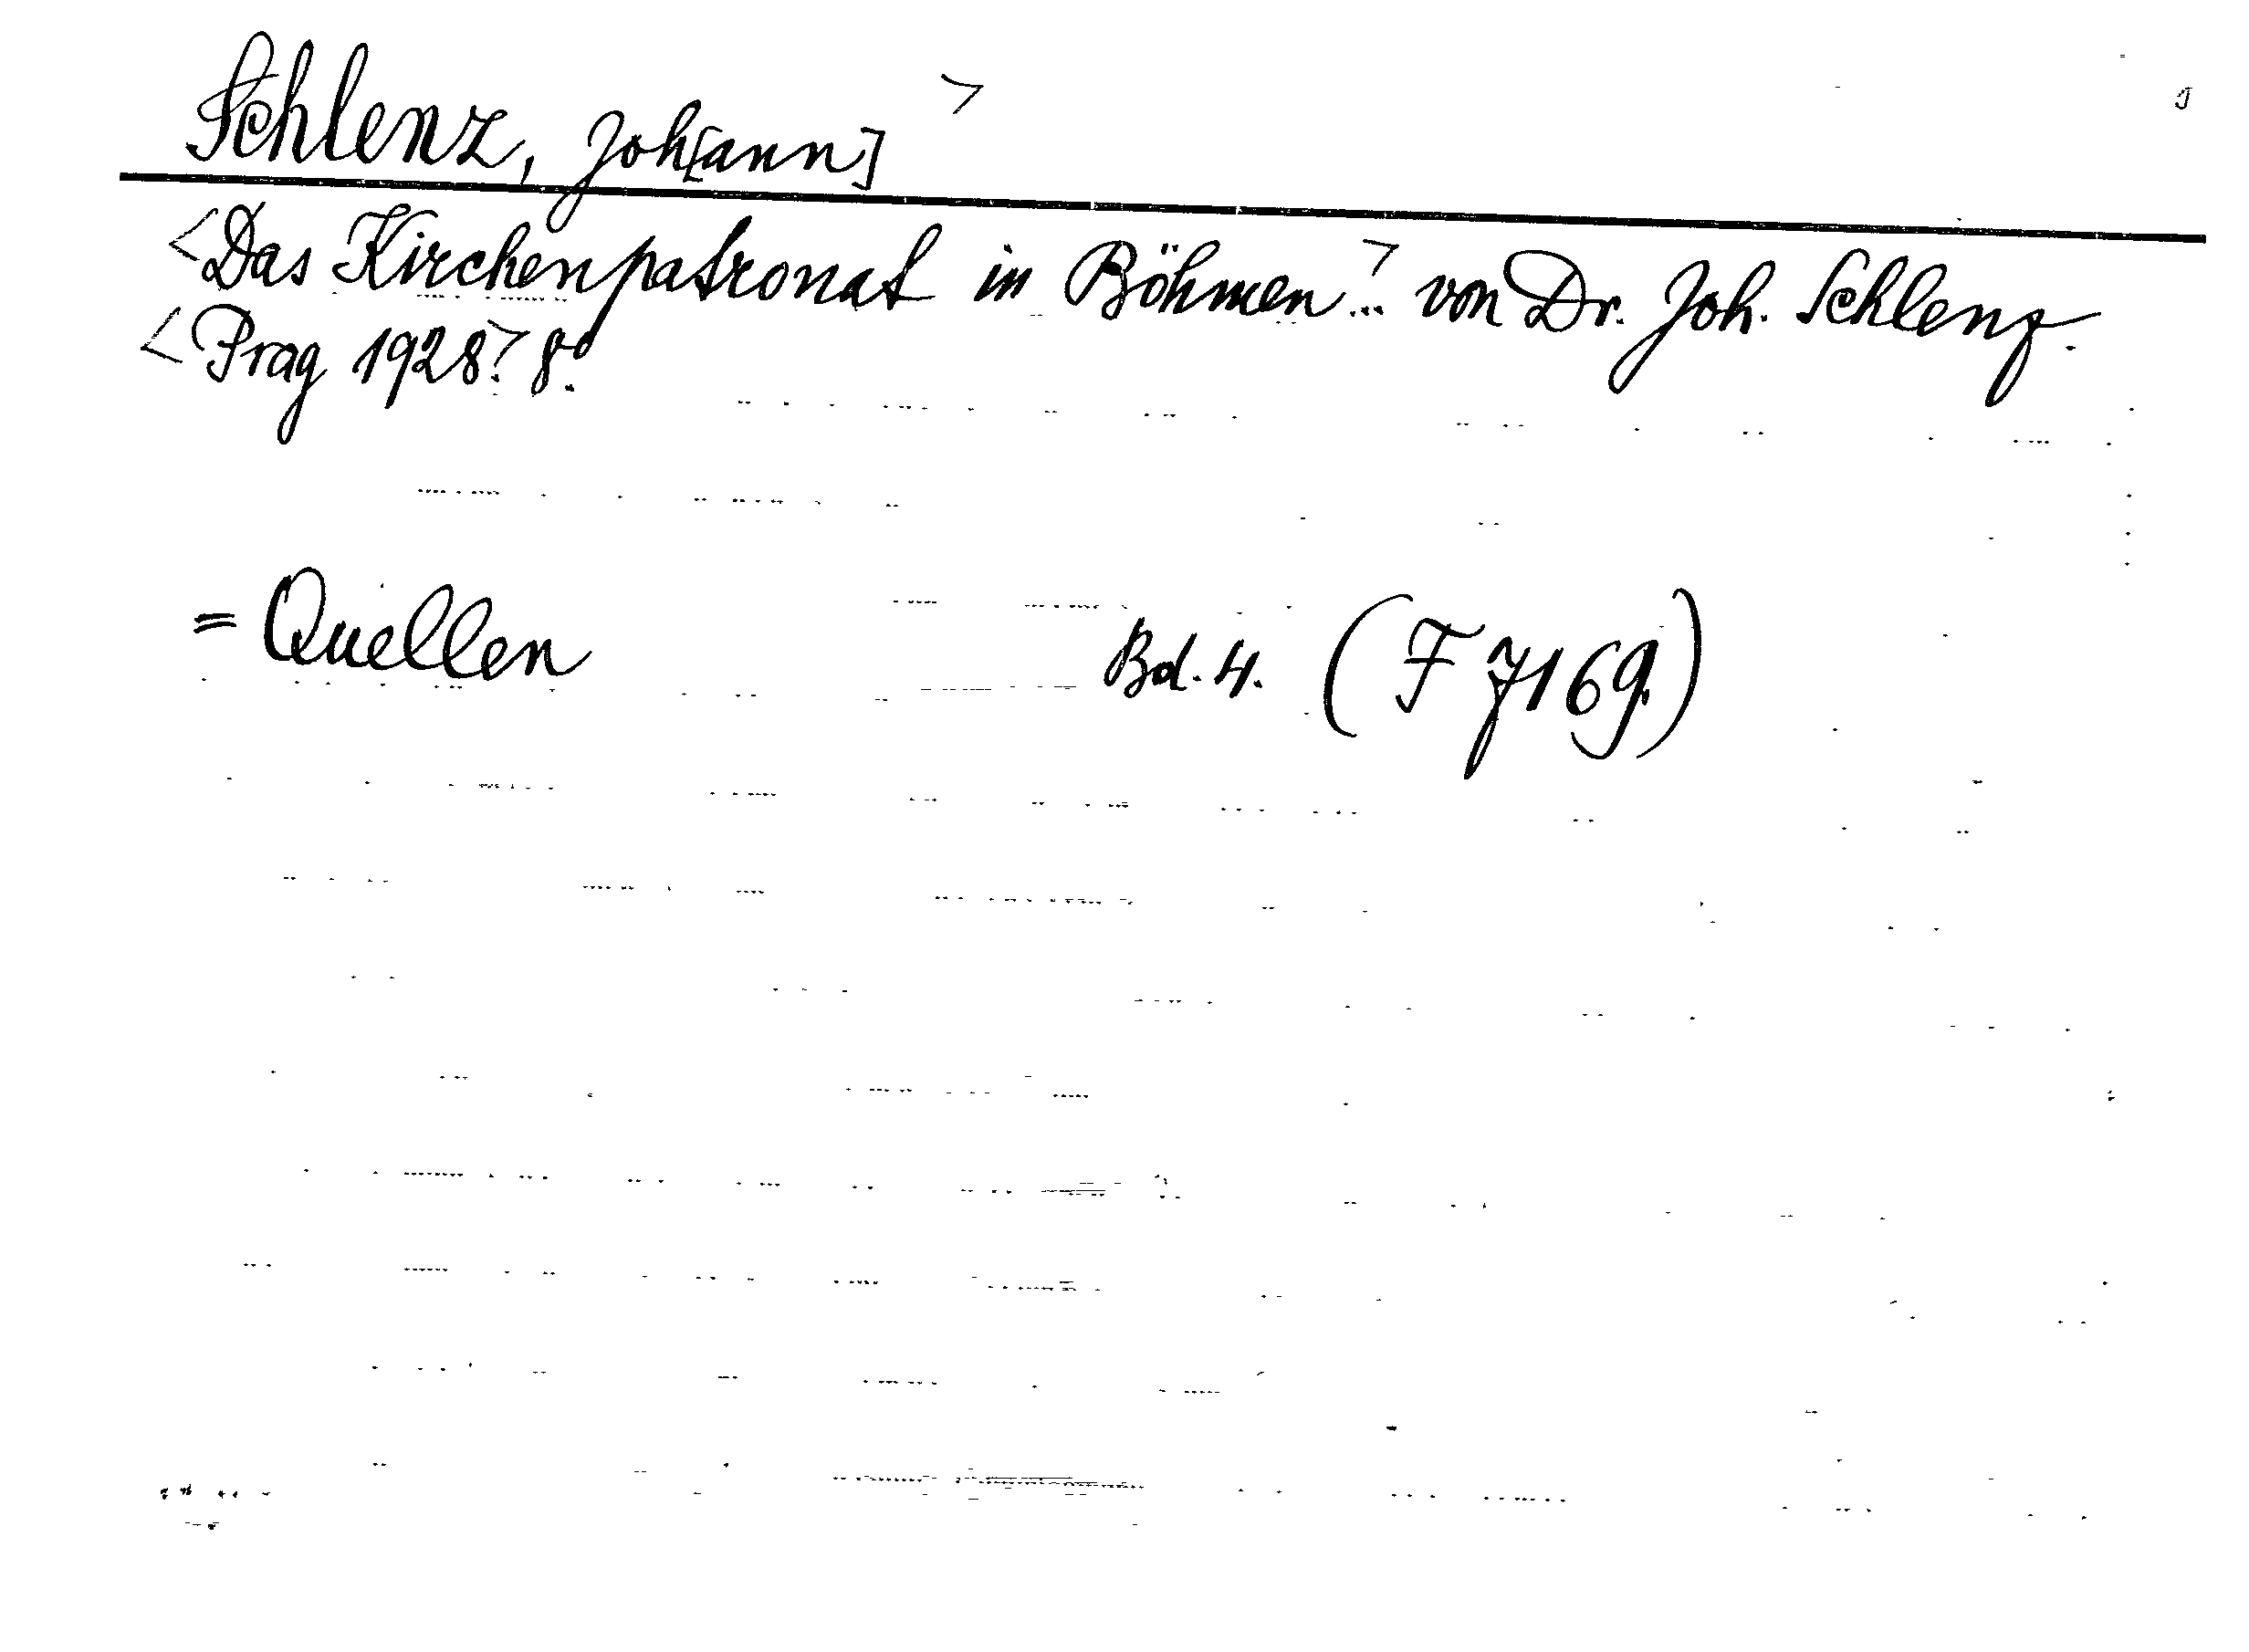 Schlenz, Joh[ann] >
<Das Kirchenpatronat in Böhmen...> von Dr. Joh. Schlenz.
<Prag 1928.> 8°.
= Quellen Bd. 4. (F 7169)